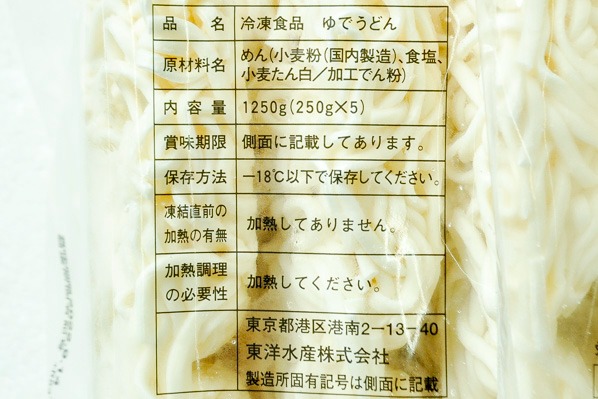 品名 冷凍食品 ゆでうどん
原材料名 めん(小麦粉(国内製造)、食塩、
小麦たん白／加工でん粉)
内容量 1250g(250g×5)
賞味期限 側面に記載してあります。
保存方法 −18℃以下で保存してください。
凍結直前の
加熱の有無 加熱してありません。
加熱調理
の必要性 加熱してください。
東京都港区港南2−13−40
東洋水産株式会社
製造所固有記号は側面に記載